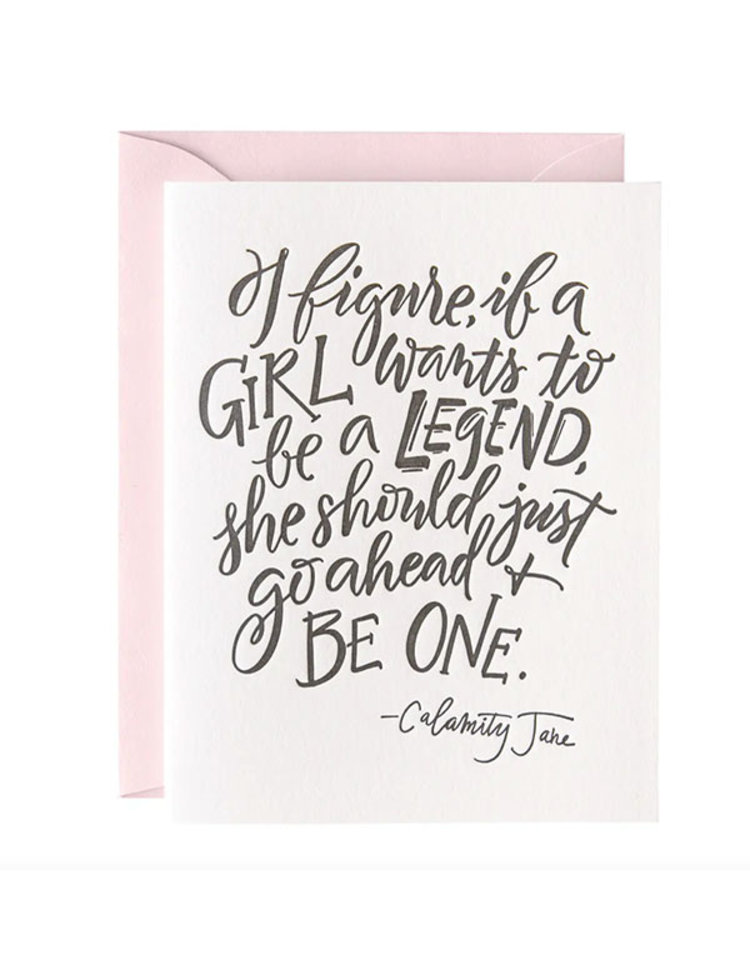 I figure, if a
GIRL wants to
be a LEGEND,
she should just
go ahead +
BE ONE.
-Calamity Jane